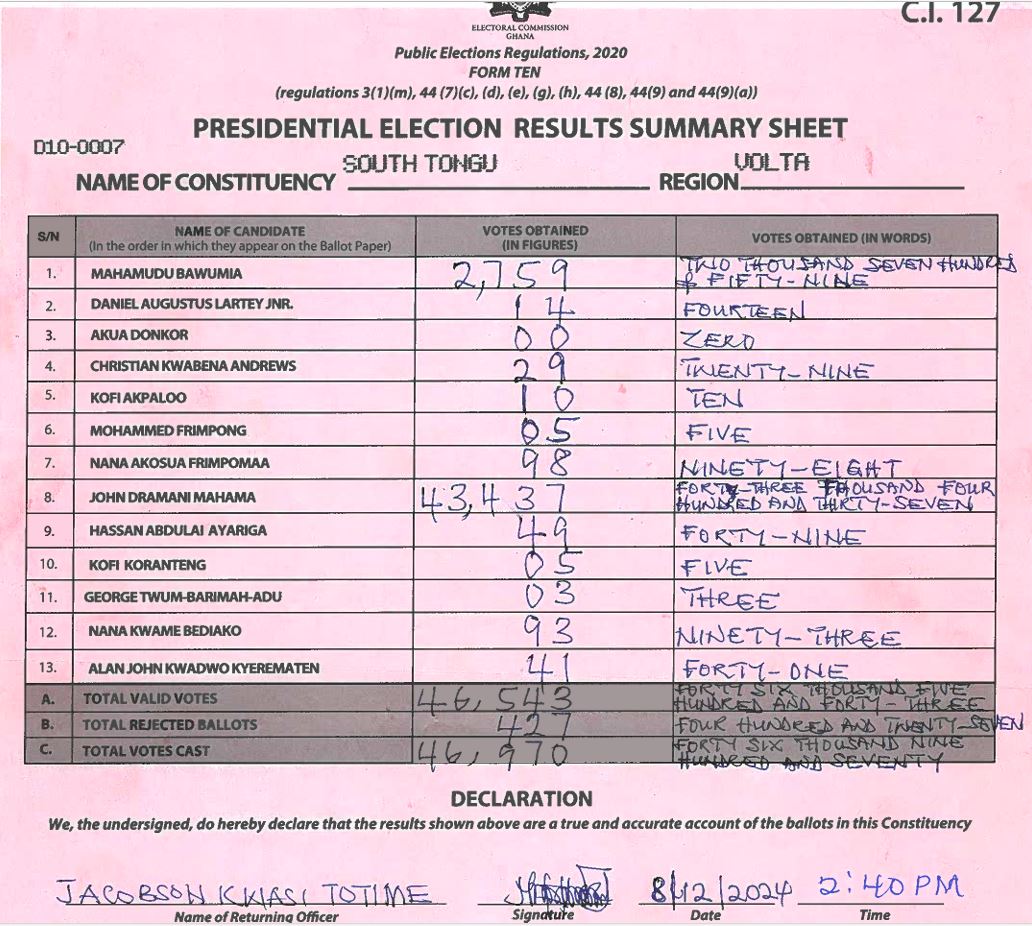 C.I. 127
ELECTORAL COMMISSION
GHANA
Public Elections Regulations, 2020
FORM TEN
(regulations 3(1)(m), 44 (7)(c), (d), (e), (g), (h), 44 (8), 44(9) and 44(9)(a))
PRESIDENTIAL ELECTION RESULTS SUMMARY SHEET
D10-0007
NAME OF CONSTITUENCY SOUTH TONGU REGION VOLTA
S/N NAME OF CANDIDATE (In the order in which they appear on the Ballot Paper) VOTES OBTAINED (IN FIGURES) VOTES OBTAINED (IN WORDS)
1. MAHAMUDU BAWUMIA 2,759 TWO THOUSAND SEVEN HUNDRED & FIFTY-NINE
2. DANIEL AUGUSTUS LARTEY JNR. 14 FOURTEEN
3. AKUA DONKOR 00 ZERO
4. CHRISTIAN KWABENA ANDREWS 29 TWENTY-NINE
5. KOFI AKPALOO 10 TEN
6. MOHAMMED FRIMPONG 05 FIVE
7. NANA AKOSUA FRIMPOMAA 98 NINETY-EIGHT
8. JOHN DRAMANI MAHAMA 43,437 FORTY-THREE THOUSAND FOUR HUNDRED AND THIRTY-SEVEN
9. HASSAN ABDULAI AYARIGA 49 FORTY-NINE
10. KOFI KORANTENG 05 FIVE
11. GEORGE TWUM-BARIMAH-ADU 03 THREE
12. NANA KWAME BEDIAKO 93 NINETY-THREE
13. ALAN JOHN KWADWO KYEREMATEN 41 FORTY-ONE
A. TOTAL VALID VOTES 46,543 FORTY SIX THOUSAND FIVE HUNDRED AND FORTY-THREE
B. TOTAL REJECTED BALLOTS 427 FOUR HUNDRED AND TWENTY-SEVEN
C. TOTAL VOTES CAST 46,970 FORTY SIX THOUSAND NINE HUNDRED AND SEVENTY
DECLARATION
We, the undersigned, do hereby declare that the results shown above are a true and accurate account of the ballots in this Constituency
JACOBSON KWASI TOTIME 8/12/2024 2:40 PM
Name of Returning Officer Signature Date Time